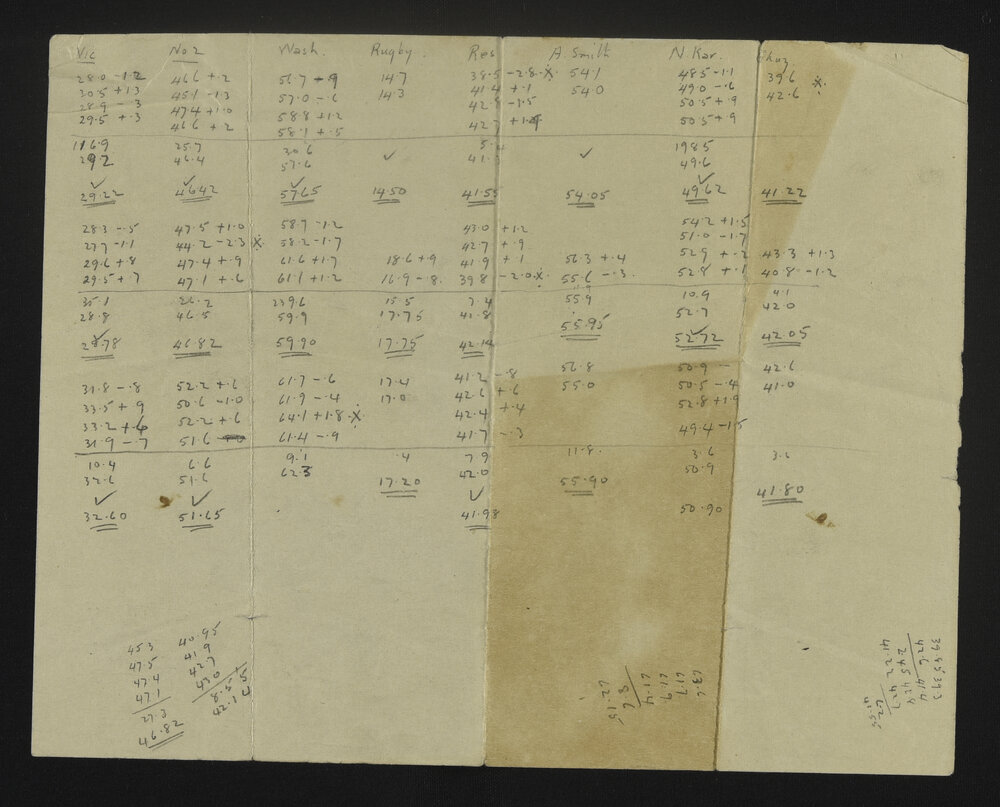 Vic No 2 Wash. Rugby. Res A. Smith N. Kar.
28.0 -1.2 46.6 +.2 56.7 +.9 14.7 38.5 -2.8 X. 54.1 48.5 -1.1 39.6 X.
30.5 +1.3 45.1 -1.3 57.0 -.6 14.3 41.4 +.1 54.0 49.0 -.6 42.6
28.9 -.3 47.4 +1.0 58.8 +1.2 42.8 -1.5 50.5 +.9
29.5 +.3 46.6 +.2 58.1 +.5 42.7 50.5 +.9
116.9 25.7 30.6 5.4 198.5
292 46.4 57.6 ✓ 41.3 ✓ 49.6
✓ ✓ ✓ ✓
29.22 46.42 57.65 14.50 41.55 54.05 49.62 41.22
28.3 -.5 47.5 +1.0 58.7 -1.2 43.0 +1.2 54.2 +1.5
27.7 -1.1 44.2 -2.3 X. 58.2 -1.7 42.7 +.9 51.0 -1.7
29.6 +.8 47.4 +.9 61.6 +1.7 18.6 +.9 41.9 +.1 56.3 +.4 52.9 +.2 43.3 +1.3
29.5 +.7 47.1 +.6 61.1 +1.2 16.9 -.8. 39.8 -2.0 X. 55.6 -.3. 52.8 +.1 40.8 -1.2
35.1 26.2 239.6 15.5 7.4 55.9 10.9 4.1
28.8 46.5 59.9 17.75 41.8 52.7 42.0
28.78 46.82 59.90 17.75 42.14 55.95 52.72 42.05
31.8 -.8 52.2 +.6 61.7 -.6 17.4 41.2 -.8 56.8 50.9 - 42.6
33.5 +.9 50.6 -1.0 61.9 -.4 17.0 42.6 +.6 55.0 50.5 -.4 41.0
33.2 +.6 52.2 +.6 64.1 +1.8 X. 42.4 +.4 52.8 +1.9
31.9 -.7 51.6 61.4 -.9 41.7 -.3 49.4 -1.5
10.4 6.6 9.1 .4 7.9 11.8. 3.6 3.6
32.6 51.6 62.3 42.0 50.9
17.20 55.90 41.80
✓ ✓ ✓
32.60 51.65 41.98 50.90
45.3
47.5
47.4
47.1
27.3
46.82
40.95
41.9
42.7
43.0
8.55
42.14
61.7
61.9
61.4
8.6
62.15
39.45 39.3
42.6 41.4
2.45 42.4
41.22 42.7